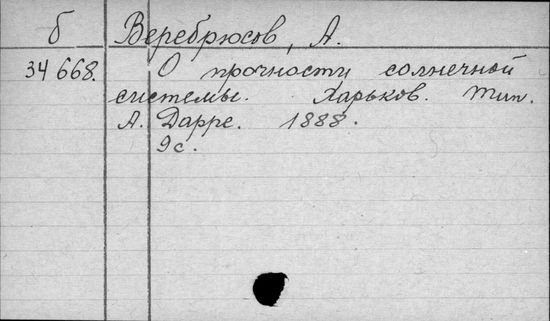 б Веребрюсов, А.
34 668. О прочности солнечной
системы. Харьков. тип.
А. Дарре. 1888.
9 с.